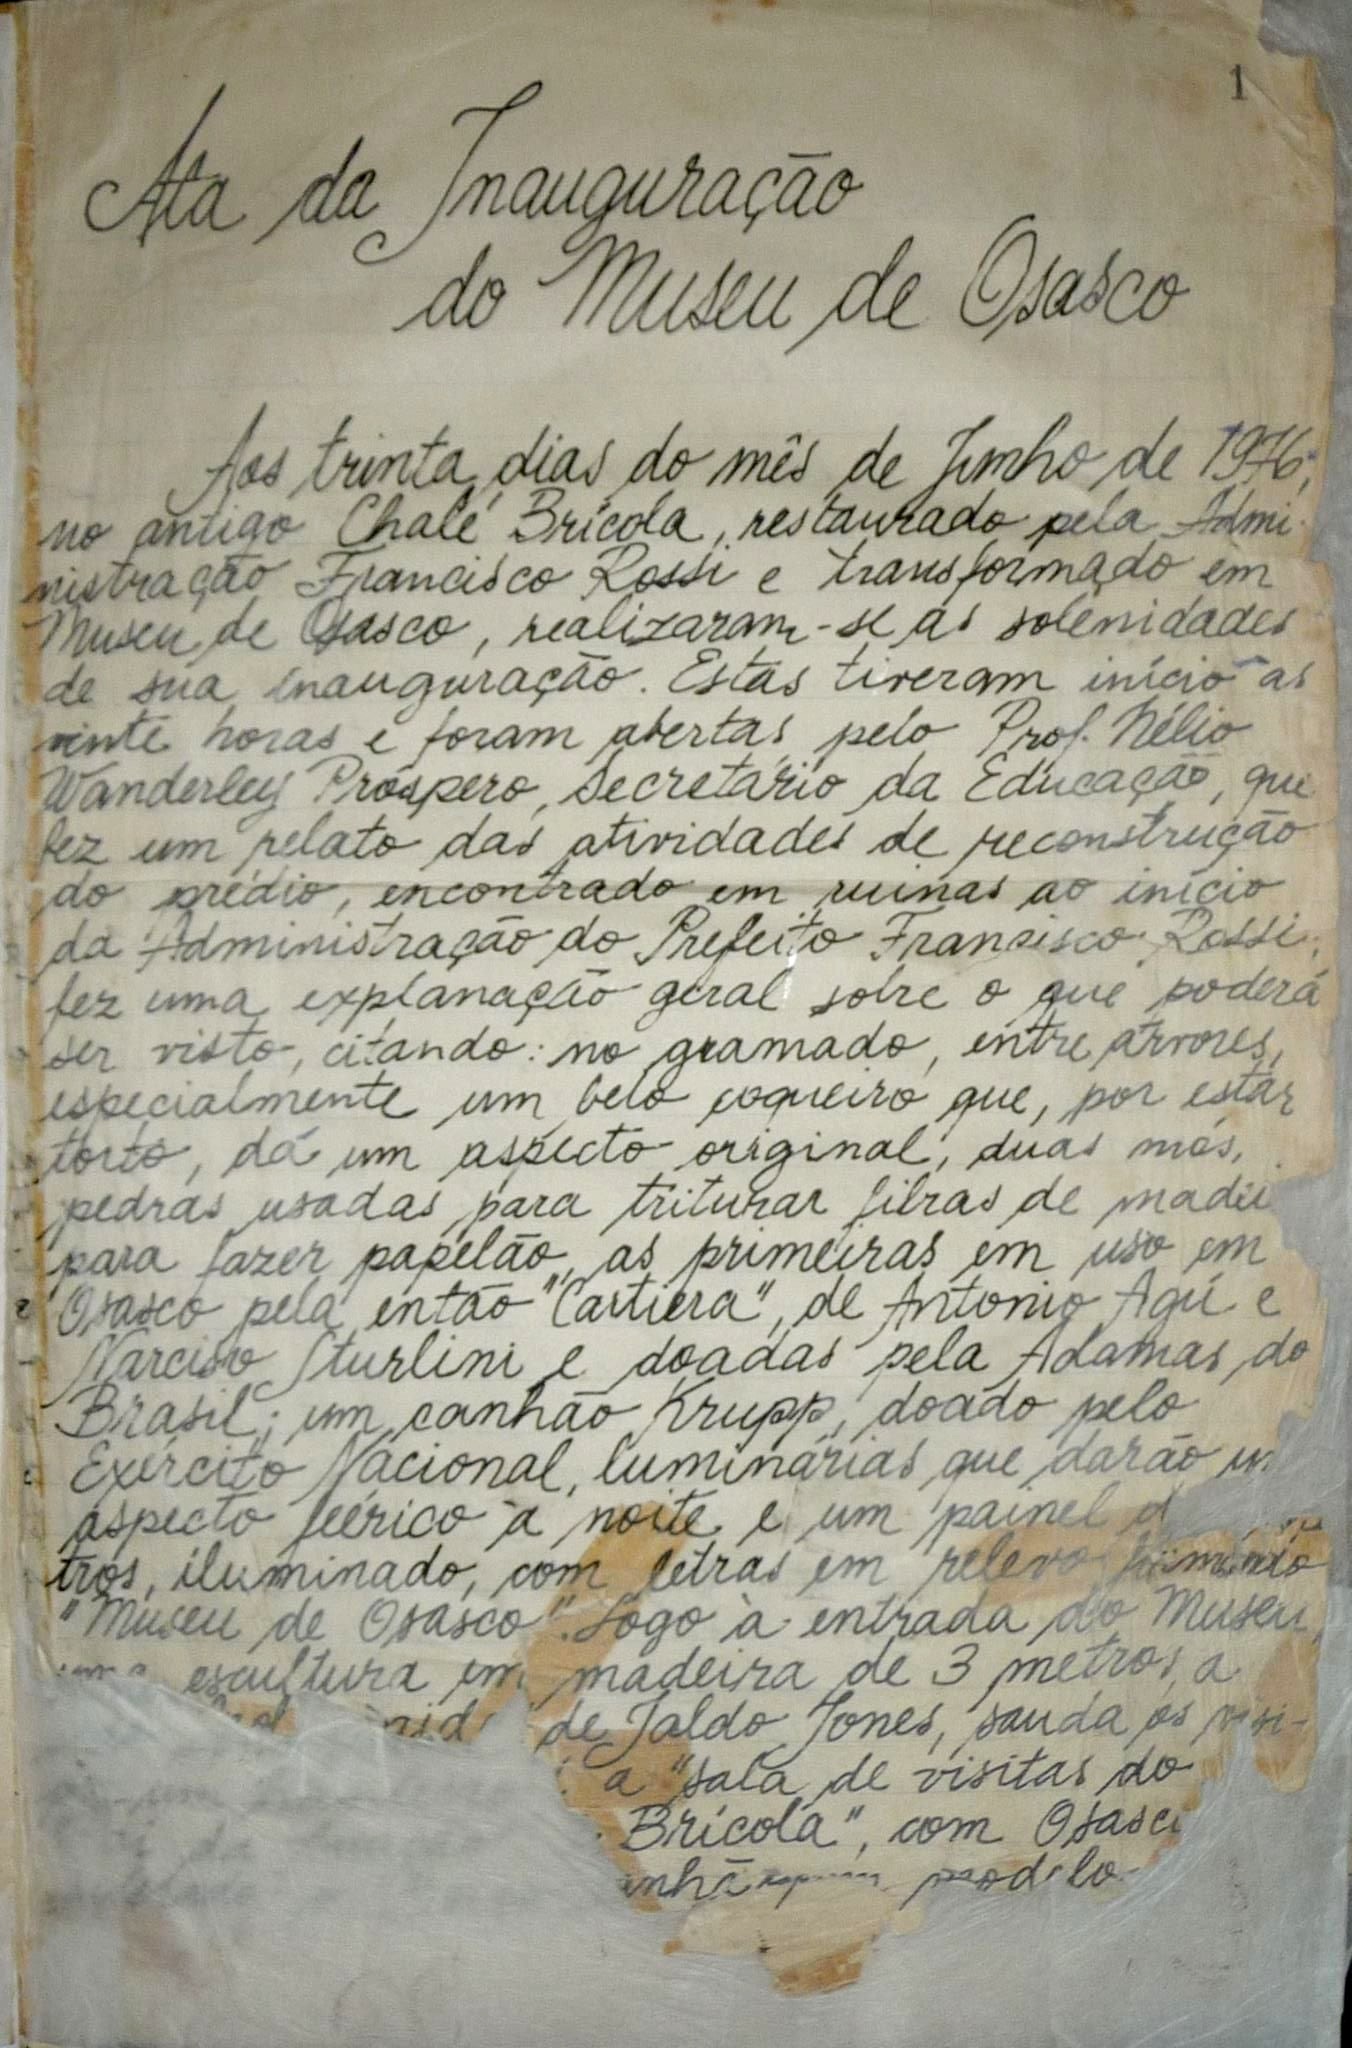 1
Ata da Inauguração
do Museu de Osasco
Aos trinta dias do mês de Junho de 1976,
no antigo Chalé Brícola, restaurado pela Admi-
nistração Francisco Rossi e transformado em
Museu de Osasco, realizaram-se as solenidades
de sua inauguração. Estas tiveram início as
vinte horas e foram abertas pelo Prof. Nélio
Wanderley Próspero, Secretário da Educação, que
fez um relato das atividades de reconstrução
do prédio, encontrado em ruinas ao início
da Administração do Prefeito Francisco Rossi;
fez uma explanação geral sobre o que poderá
ser visto, citando: no gramado, entre árvores,
especialmente um belo coqueiro que, por estar
torto, dá um aspecto original, duas mós,
pedras usadas para triturar fibras de madei
para fazer papelão, as primeiras em uso em
Osasco pela então "Cartiera", de Antonio Agú e
Narciso Sturlini e doadas pela Adamas do
Brasil; um canhão Krupp, doado pelo
Exército Nacional, luminárias que darão um
aspecto feérico à noite e um painel d
tros, iluminado, com letras em relevo
"Museu de Osasco". Logo à entrada do Museu,
uma escultura em madeira de 3 metros, a
de Jaldo Jones, sauda os visi-
a "sala de visitas do
Brícola", com Osasc
modelo